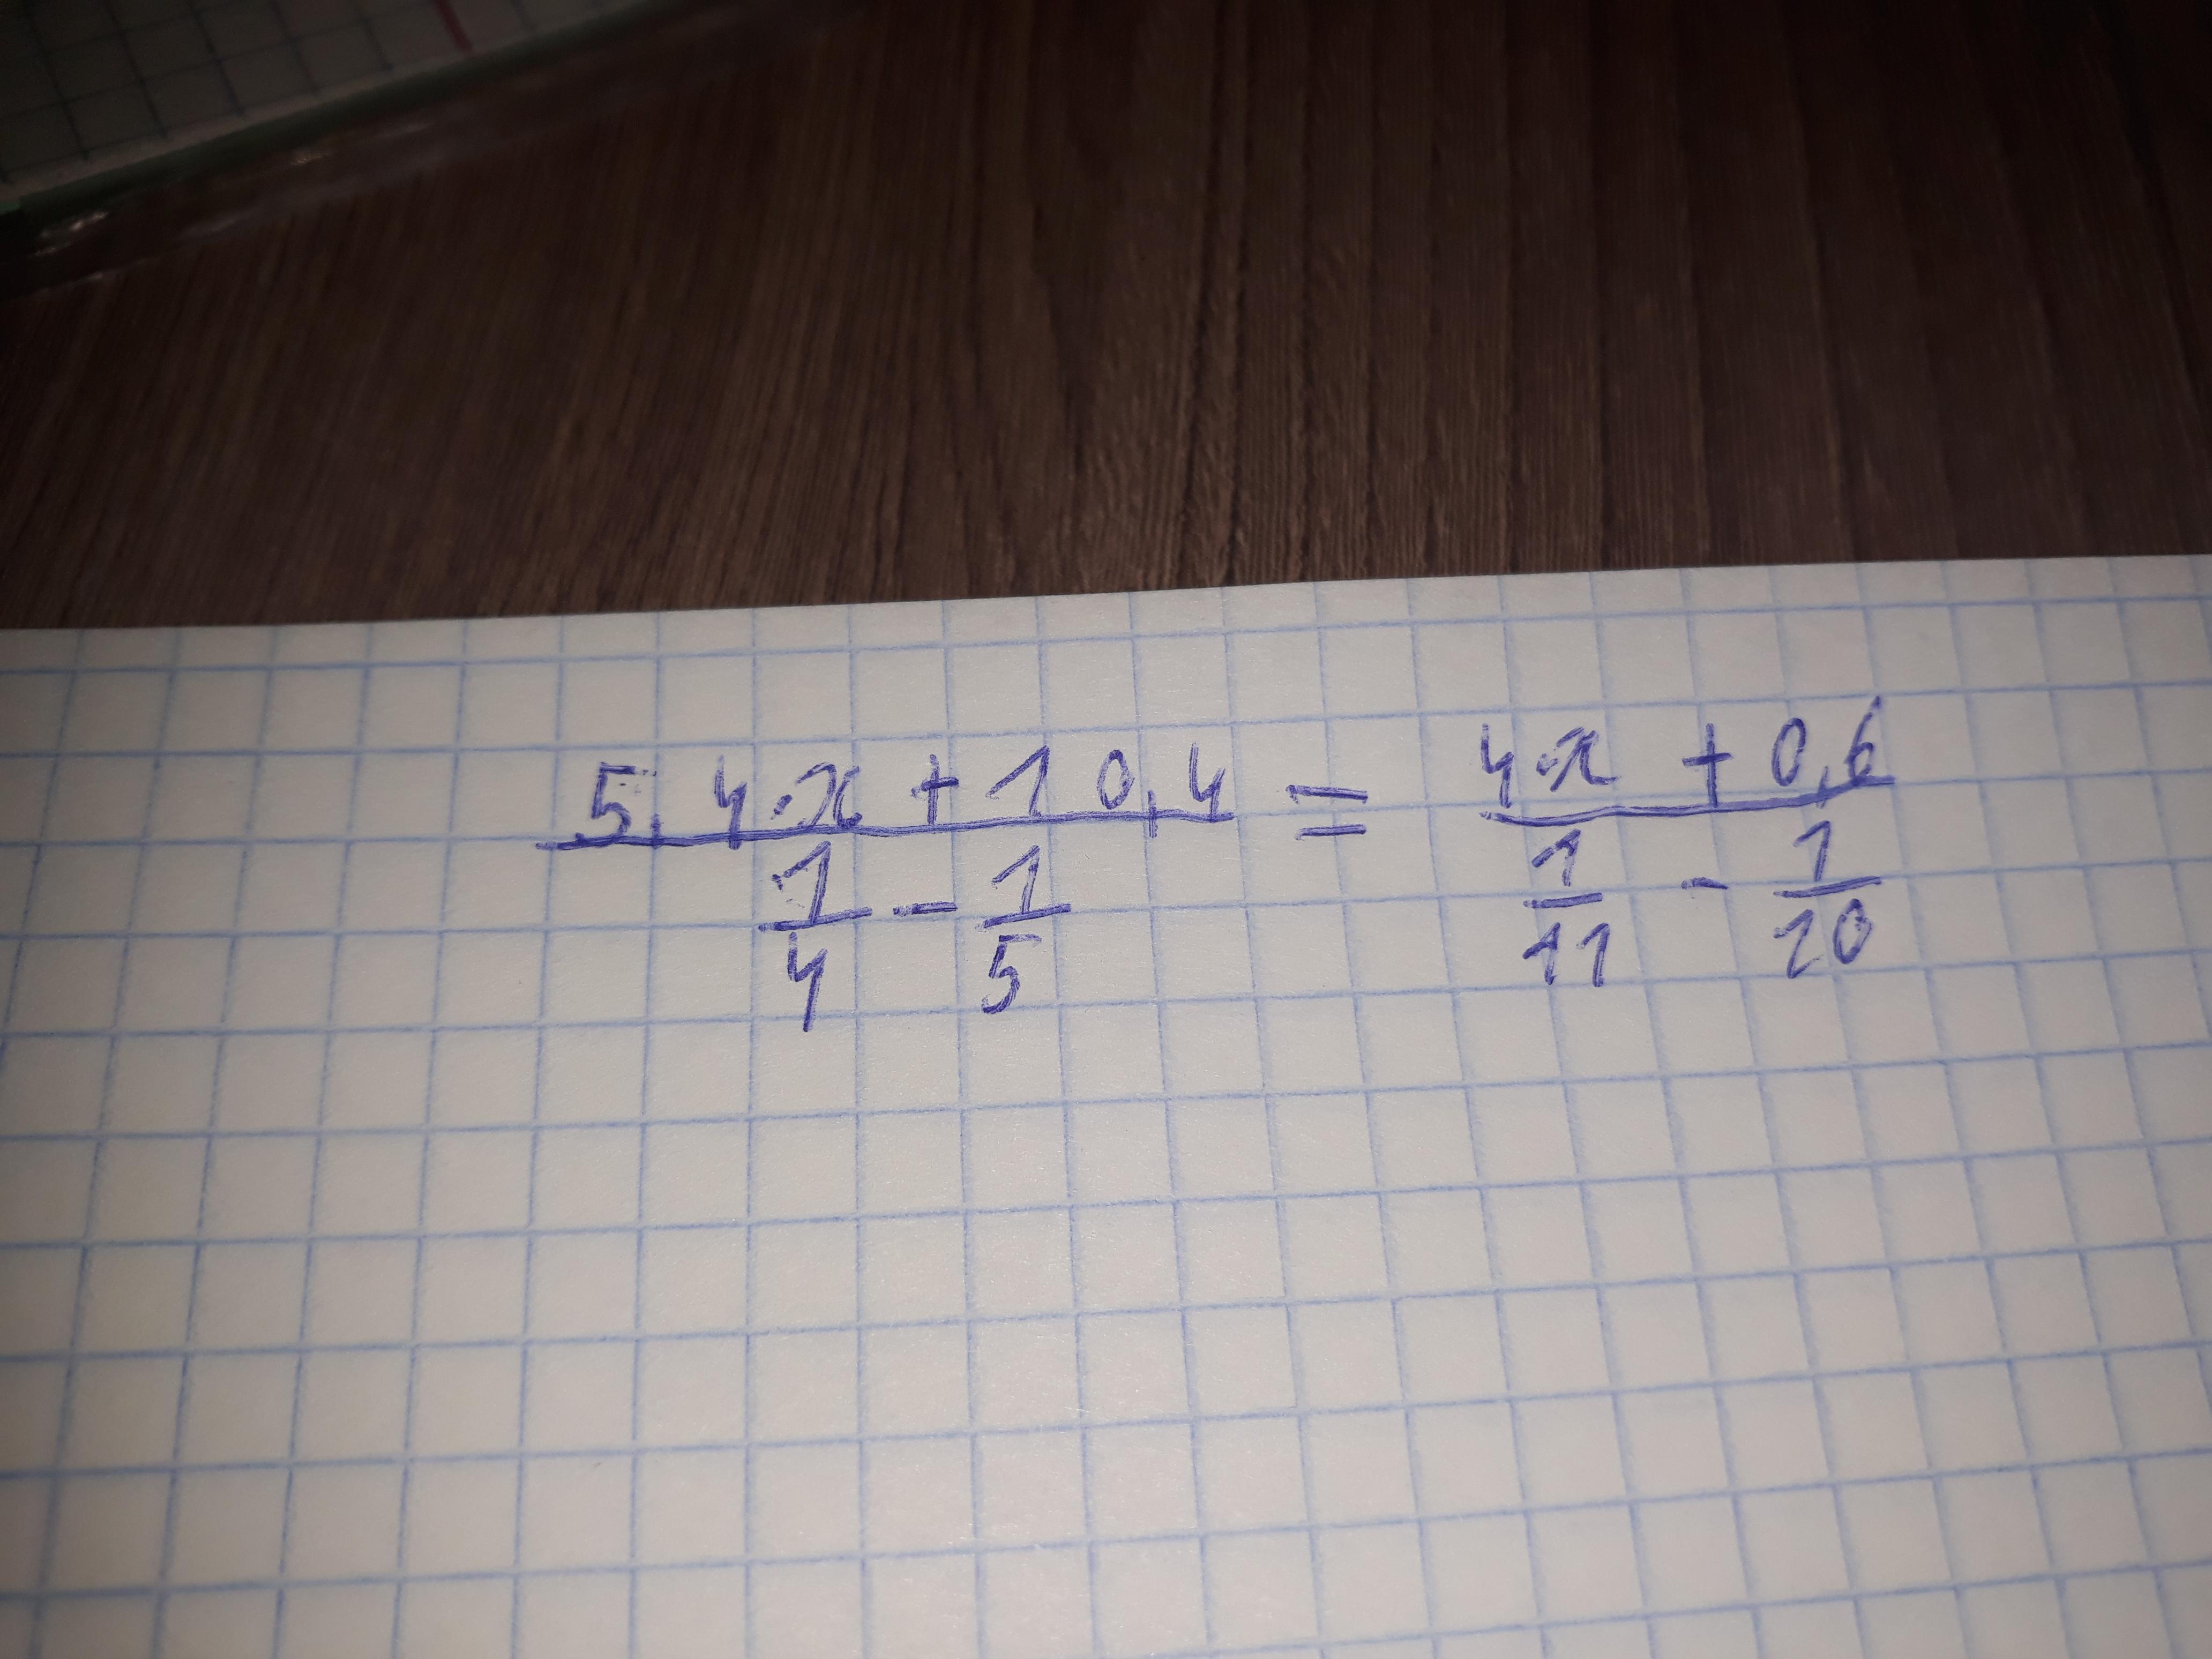 5,4·x + 10,4 / (1/4 - 1/5) = 4·x + 0,6 / (1/11 - 1/10)